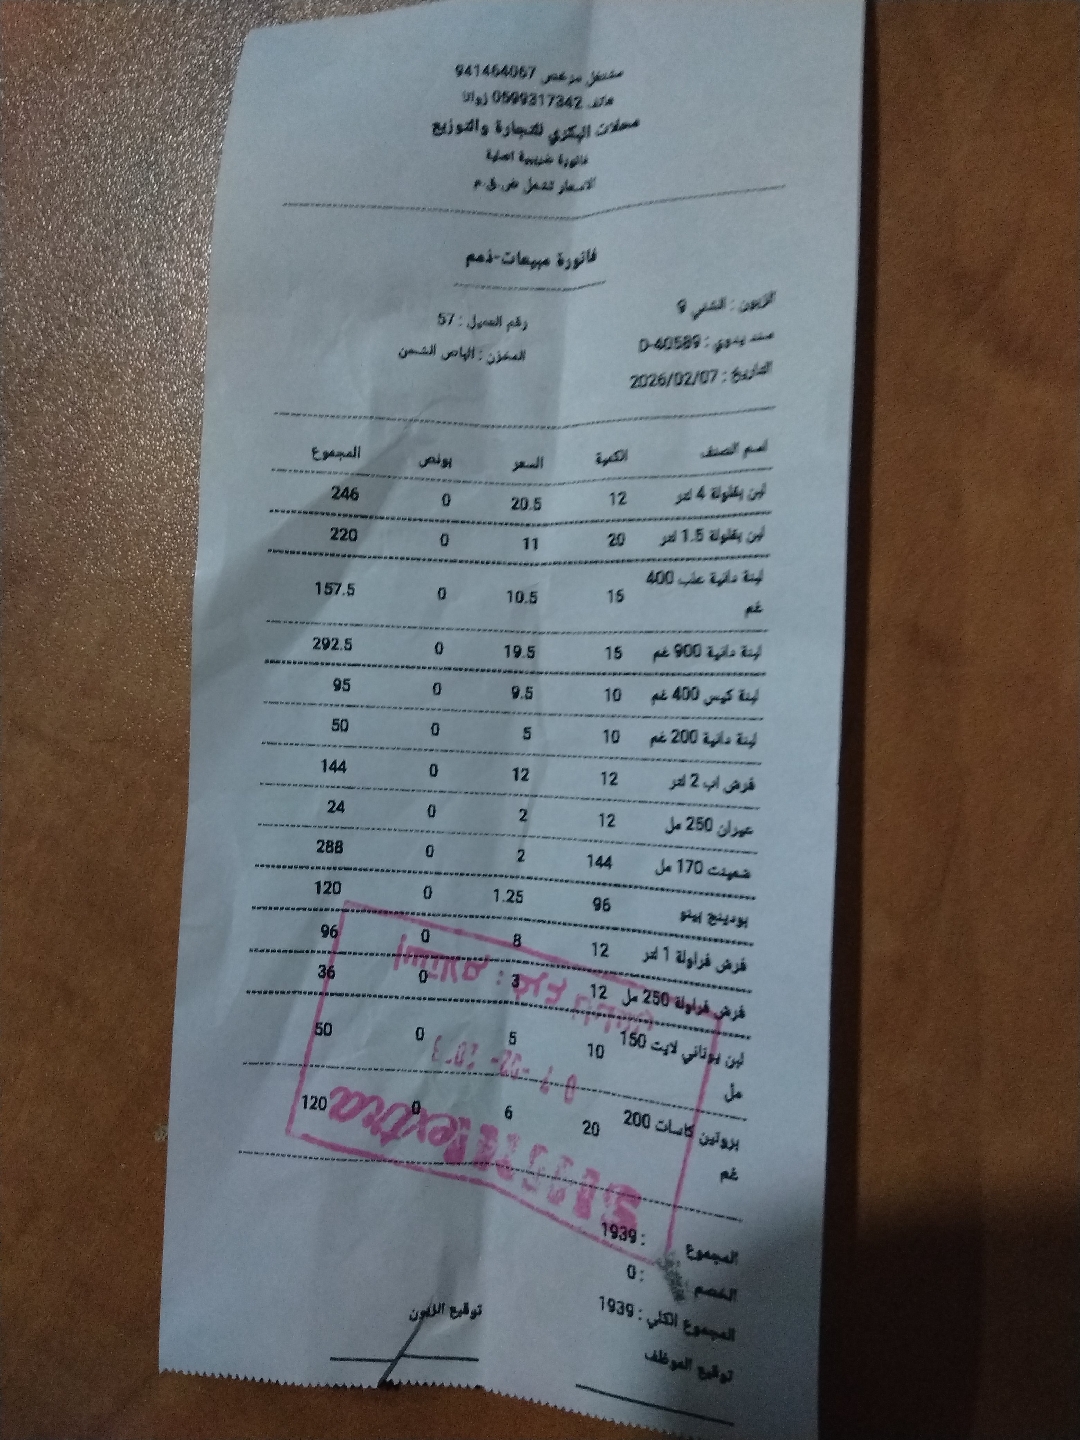 مشتغل مرخص 941464067
هاتف 0599317342
محلات البكري للتجارة والتوزيع
فاتورة ضريبية اصلية
الاسعار تشمل ض.ق.م
فاتورة مبيعات-ذمم
الزبون : الشني 9
رقم العميل : 57
سند يدوي : D-40589
المخزن : الباص الشحن
التاريخ : 2026/02/07
اسم الصنف الكمية السعر بونص المجموع
لبن بكلولة 4 لتر 12 20.5 0 246
لبن بكلولة 1.5 لتر 20 11 0 220
لبنة دانية علب 400 15 10.5 0 157.5
غم
لبنة دانية 900 غم 15 19.5 0 292.5
لبنة كيس 400 غم 10 9.5 0 95
لبنة دانية 200 غم 10 5 0 50
فرش اب 2 لتر 12 12 0 144
عيران 250 مل 12 2 0 24
شمينت 170 مل 144 2 0 288
بودينج بينو 96 1.25 0 120
فرش فراولة 1 لتر 12 8 0 96
فرش فراولة 250 مل 12 3 0 36
لبن يوناني لايت 150 10 5 0 50
مل
بروتين كاسات 200 20 6 0 120
غم
extra
المجموع : 1939
الخصم : 0
المجموع الكلي : 1939
توقيع الموظف
توقيع الزبون